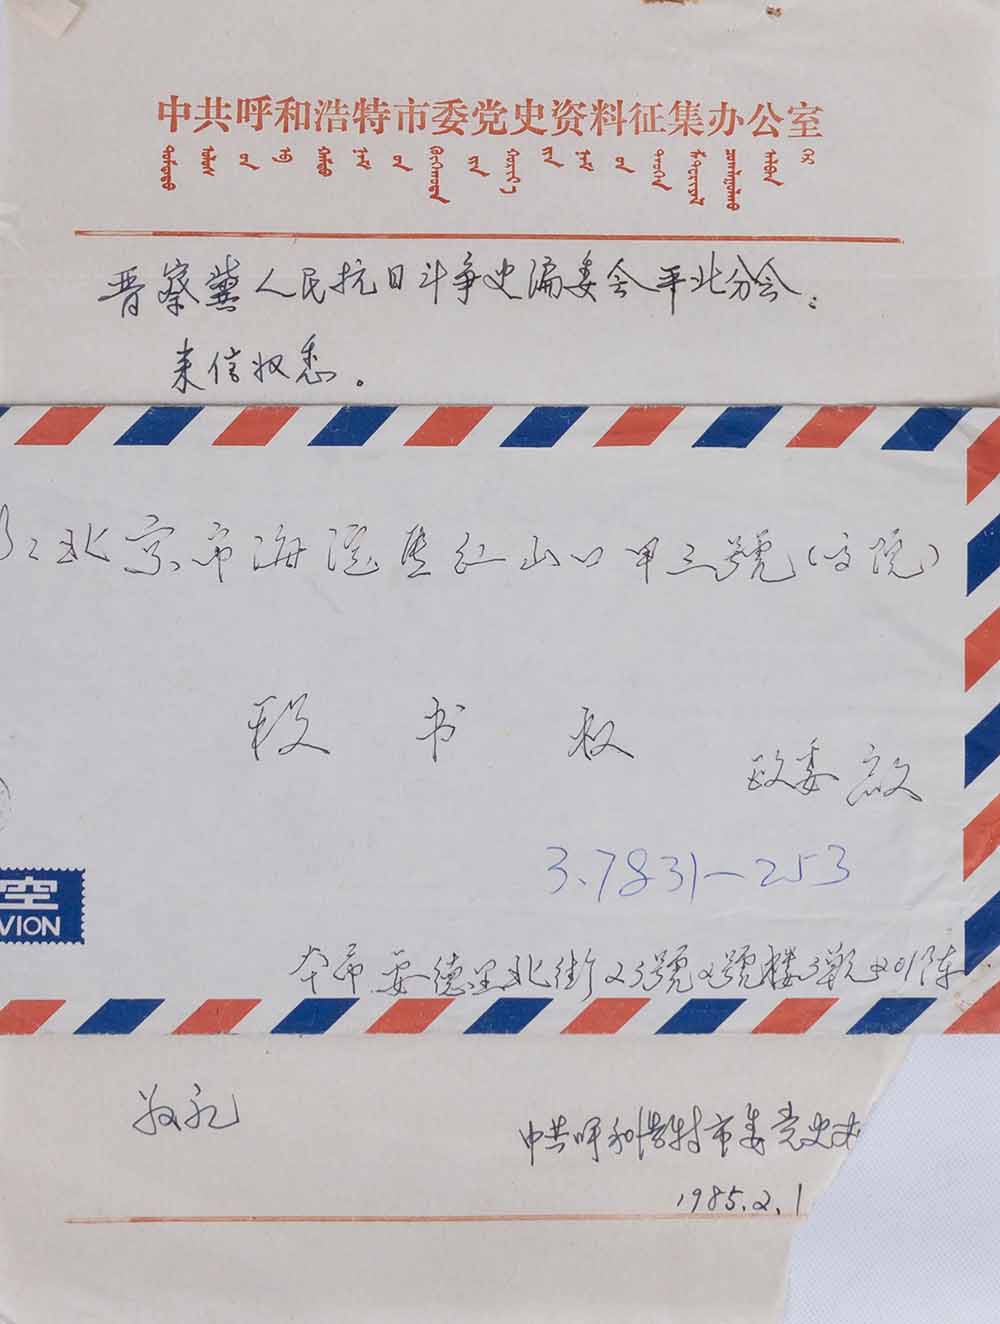 中共呼和浩特市委党史资料征集办公室
晋察冀人民抗日斗争史编委会平北分会：
来信收悉。
北京市海淀区红山口甲三號
段 书 权
政委 啟
3.7831-253
空
VION
本市安德里北街23號2號楼3單201陈
敬礼
中共呼和浩特市委党史
1985.2.1